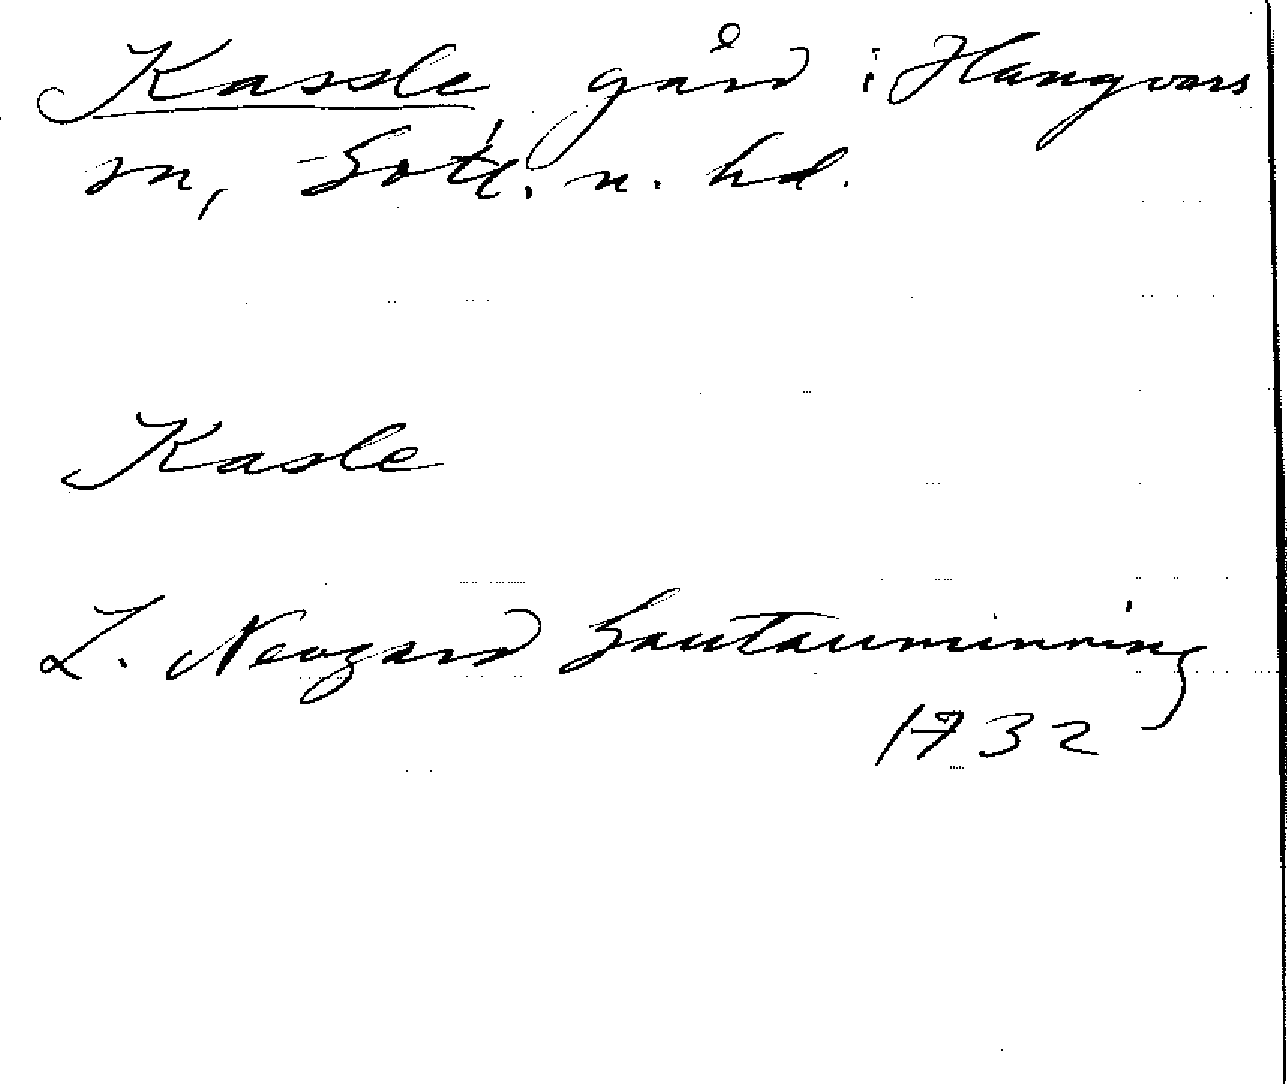 Kassle gård i Hangvars
sn, Gotl. n. hd.
Kasle
L. Neogard Gautauminning
1732